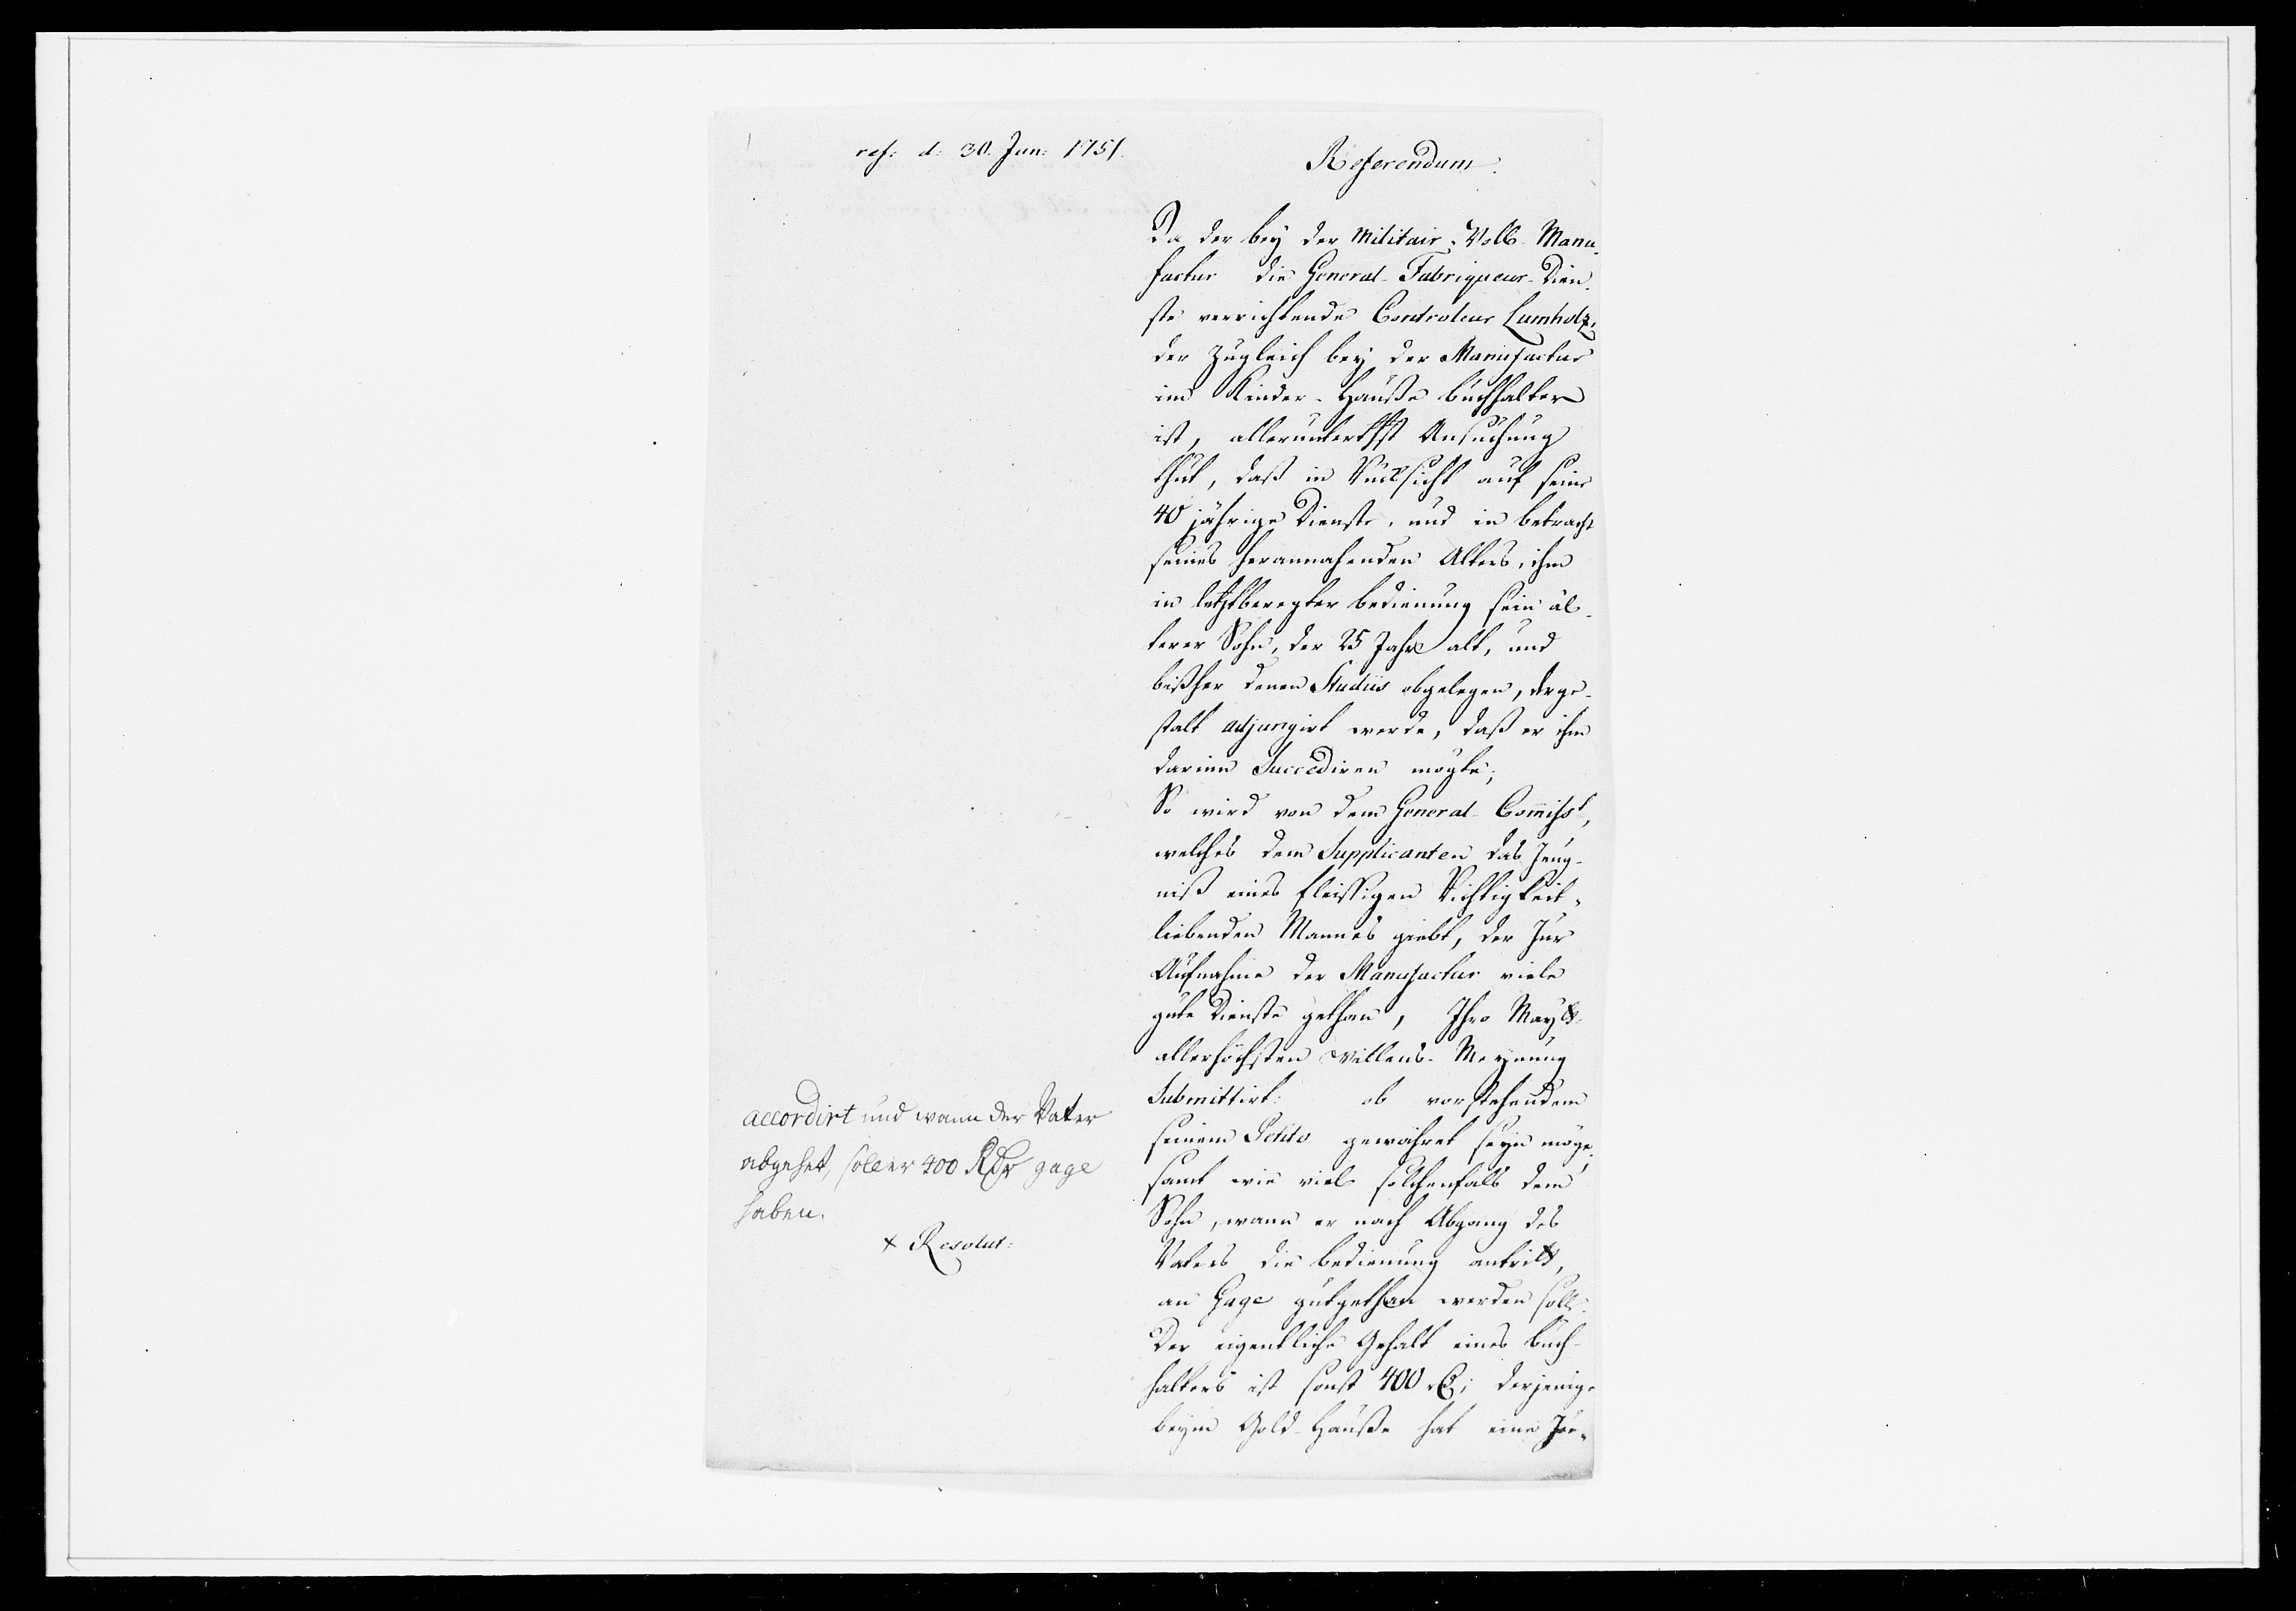 ref: d: 30. Jun: 1751.
Referendum.
Da der bey der Militair-Woll-Manu-
factur die General-Fabriqueur-Dien-
ste verrichtende Controleur Lumholz,
der zugleich bey der Manufactur
im Kinder-Hauße buchhalter
ist, allerunterthst Ansuchung
thut, daß in Rücksicht auf seine
40 jährige Dienste, und in betracht
seines herannahenden Alters, ihm
in letztberegter bedienung sein äl-
terer Sohn, der 25 Jahr alt, und
bißher denen Studiis obgelegen, derge-
stalt adjungirt werde, daß er ihm
darinn Succediren mögte;
So wird von dem General-Commisst,
welches dem Supplicanten das Zeug-
niß eines fleissigen Richtigkeit-
liebenden Mannes giebt, der zur
Aufnahme der Manufactur viele
gute Dienste gethan, Ihro Maytt
allerhöchsten Willens-Meynung
Submittirt: ob vorstehendem
seinem Petito gewähret seyn möge,
samt wie viel solchenfals dem
Sohn, wann er nach Abgang des
Vaters die bedienung antritt,
an Gage gutgethan werden soll.
Der eigentliche Gehalt eines buch-
halters ist sonst 400 rC; derjenige
beym Gold-Hauße hat eine Zu-
accordirt und wann der Vater
abgehet, soll er 400 Rdr gage
haben.
x Resolut: